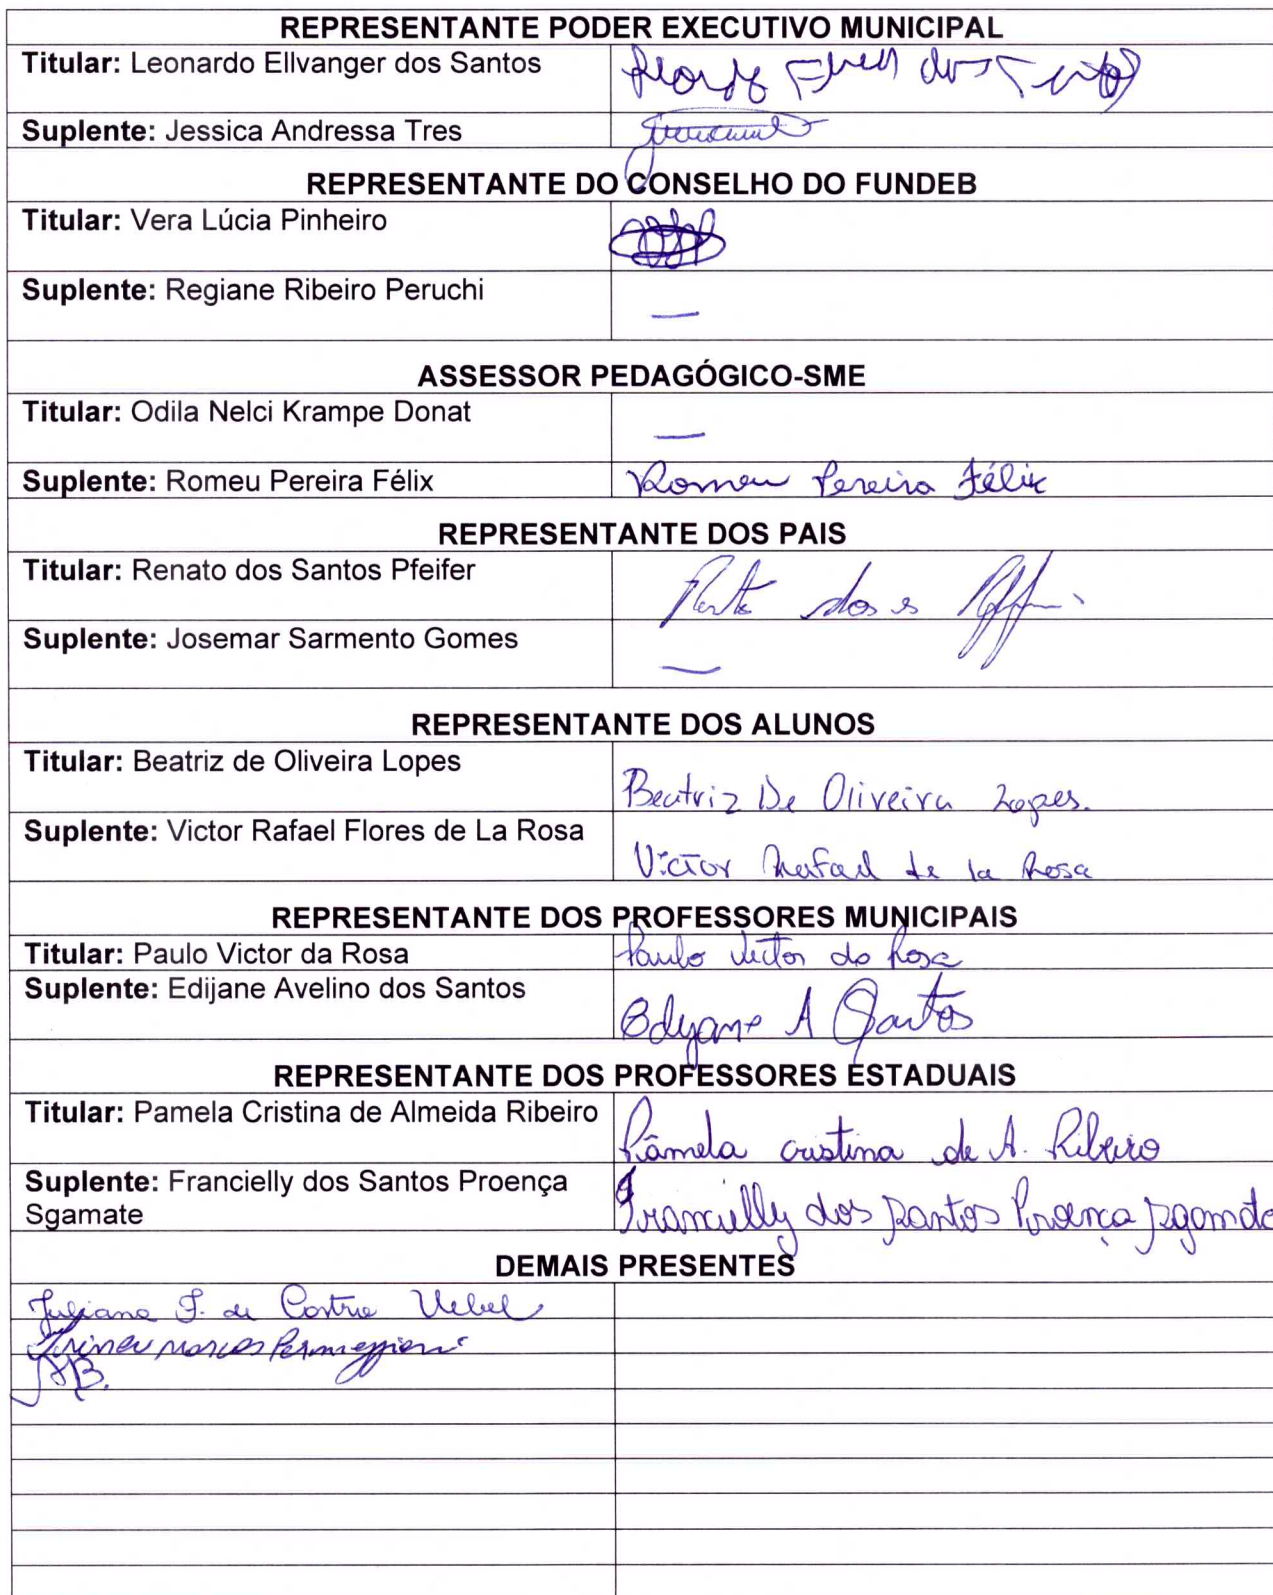 REPRESENTANTE PODER EXECUTIVO MUNICIPAL
Titular: Leonardo Ellvanger dos Santos
Suplente: Jessica Andressa Tres
REPRESENTANTE DO CONSELHO DO FUNDEB
Titular: Vera Lúcia Pinheiro
Suplente: Regiane Ribeiro Peruchi —
ASSESSOR PEDAGÓGICO-SME
Titular: Odila Nelci Krampe Donat —
Suplente: Romeu Pereira Félix Romeu Pereira Félix
REPRESENTANTE DOS PAIS
Titular: Renato dos Santos Pfeifer
Suplente: Josemar Sarmento Gomes —
REPRESENTANTE DOS ALUNOS
Titular: Beatriz de Oliveira Lopes Beatriz De Oliveira Lopes.
Suplente: Victor Rafael Flores de La Rosa Victor Rafael de la Rosa
REPRESENTANTE DOS PROFESSORES MUNICIPAIS
Titular: Paulo Victor da Rosa Paulo Victor da Rosa
Suplente: Edijane Avelino dos Santos Edijane A Santos
REPRESENTANTE DOS PROFESSORES ESTADUAIS
Titular: Pamela Cristina de Almeida Ribeiro Pâmela cristina de A. Ribeiro
Suplente: Francielly dos Santos Proença Francielly dos Santos Proença Sgamate
Sgamate
DEMAIS PRESENTES
Juliana F. de Castro Uebel
Irineu Marcos Parmeggiani